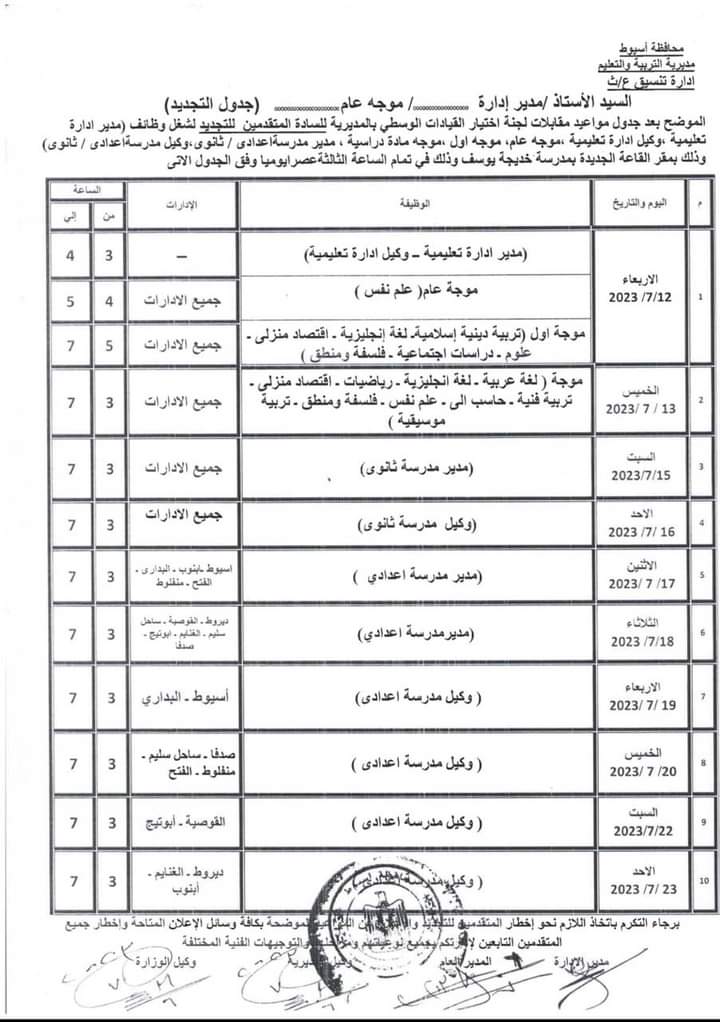 محافظة أسيوط
مديرية التربية والتعليم
ادارة تنسيق ع/ث
السيد الأستاذ /مدير إدارة ............... / موجه عام............... (جدول التجديد)
الموضح بعد جدول مواعيد مقابلات لجنة اختيار القيادات الوسطي بالمديرية للسادة المتقدمين للتجديد لشغل وظائف (مدير ادارة
تعليمية ،وكيل ادارة تعليمية ،موجه عام، موجه اول ،موجه مادة دراسية ، مدير مدرسةاعدادى / ثانوى،وكيل مدرسةاعدادى / ثانوى)
وذلك بمقر القاعة الجديدة بمدرسة خديجة يوسف وذلك في تمام الساعة الثالثةعصرايوميا وفق الجدول الاتى
م اليوم والتاريخ الوظيفة الإدارات الساعة
من إلي
1 الاربعاء 2023 /7/12
(مدير ادارة تعليمية – وكيل ادارة تعليمية) – 3 4
موجة عام( علم نفس ) جميع الادارات 4 5
موجة اول (تربية دينية إسلامية- لغة إنجليزية - اقتصاد منزلى -
علوم - دراسات اجتماعية - فلسفة ومنطق ) جميع الادارات 5 7
2 الخميس 2023/ 7 / 13
موجة ( لغة عربية - لغة انجليزية - رياضيات - اقتصاد منزلى -
تربية فنية - حاسب الى - علم نفس - فلسفة ومنطق - تربية
موسيقية ) جميع الادارات 3 7
3 السبت 2023/7/15 (مدير مدرسة ثانوى) جميع الادارات 3 7
4 الاحد 2023 /7/ 16 (وكيل مدرسة ثانوى) جميع الادارات 3 7
5 الاثنين 2023/ 7 /17 (مدير مدرسة اعدادي ) اسيوط -ابنوب - البدارى -
الفتح - منفلوط 3 7
6 الثلاثاء 2023 /7/18 (مديرمدرسة اعدادي) ديروط - القوصية - ساحل
سليم - الغنايم - أبوتيج -
صدفا 3 7
7 الاربعاء 2023/ 7/ 19 ( وكيل مدرسة اعدادى) أسيوط - البداري 3 7
8 الخميس 2023/ 7 /20 ( وكيل مدرسة اعدادى ) صدفا - ساحل سليم -
منفلوط - الفتح 3 7
9 السبت 2023/7/22 ( وكيل مدرسة اعدادى ) القوصية - أبوتيج 3 7
10 الاحد 2023 /7/ 23 ( وكيل مدرسة اعدادى ) ديروط - الغنايم -
أبنوب 3 7
برجاء التكرم باتخاذ اللازم نحو إخطار المتقدمين للتجديد الموضحة بكافة وسائل الإعلان المتاحة وإخطار جميع
المتقدمين التابعين لإدارتكم بجميع نوعياتهم والتوجيهات الفنية المختلفة
مدير الإدارة المدير العام وكيل المديرية وكيل الوزارة